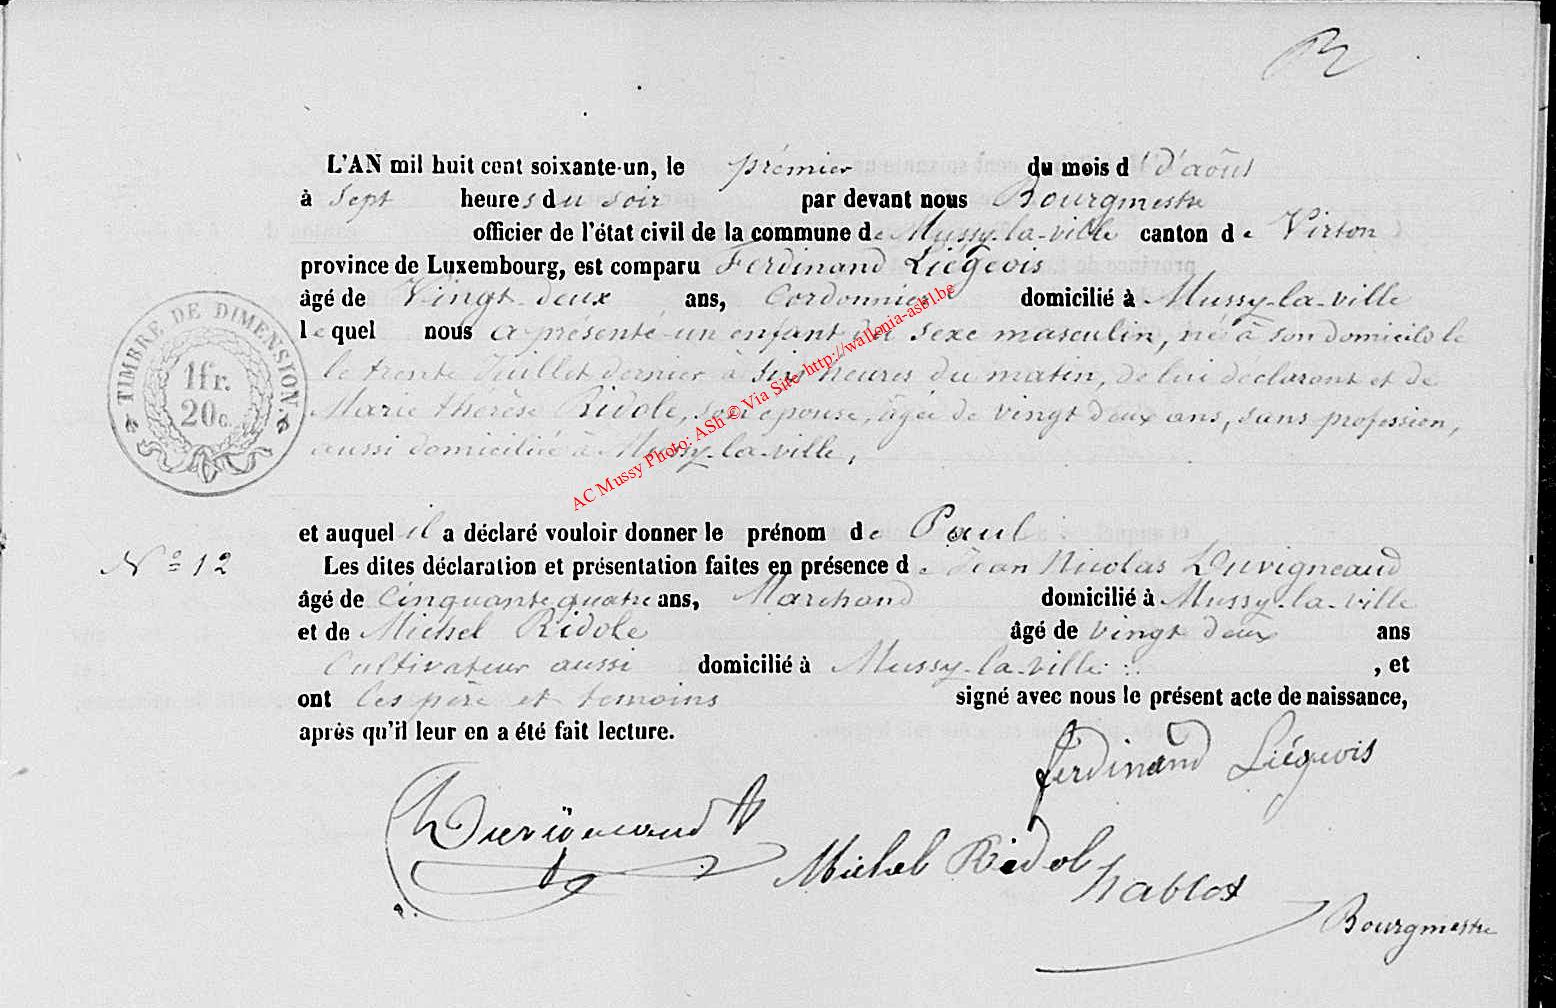 L'AN mil huit cent soixante-un, le prémier du mois d'août
à sept heures du soir par devant nous Bourgmestre
officier de l'état civil de la commune de Mussy-la-ville canton de Virton
province de Luxembourg, est comparu Ferdinand Liégeois
âgé de Vingt-deux ans, Cordonnier domicilié à Mussy-la-ville
lequel nous a présenté un enfant du sexe masculin, né à son domicile le
le trente Juillet dernier à six heures du matin, de lui déclarant et de
Marie Thérèse Ridole, son épouse, âgée de vingt deux ans, sans profession,
aussi domiciliée à Mussy-la-ville,
et auquel il a déclaré vouloir donner le prénom de Paul
Les dites déclaration et présentation faites en présence de Jean Nicolas Duvigneaud
âgé de Cinquante quatre ans, Marchand domicilié à Mussy-la-ville
et de Michel Ridole âgé de vingt deux ans
Cultivateur aussi domicilié à Mussy-la-ville , et
ont les père et temoins signé avec nous le présent acte de naissance,
après qu'il leur en a été fait lecture.
N° 12
TIMBRE DE DIMENSION
1fr.
20c.
Ferdinand Liégeois
Duvigneaud
Michel Ridol
hablot
Bourgmestre
AC Mussy Photo: ASh © Via Site http://wallonia-asbl.be